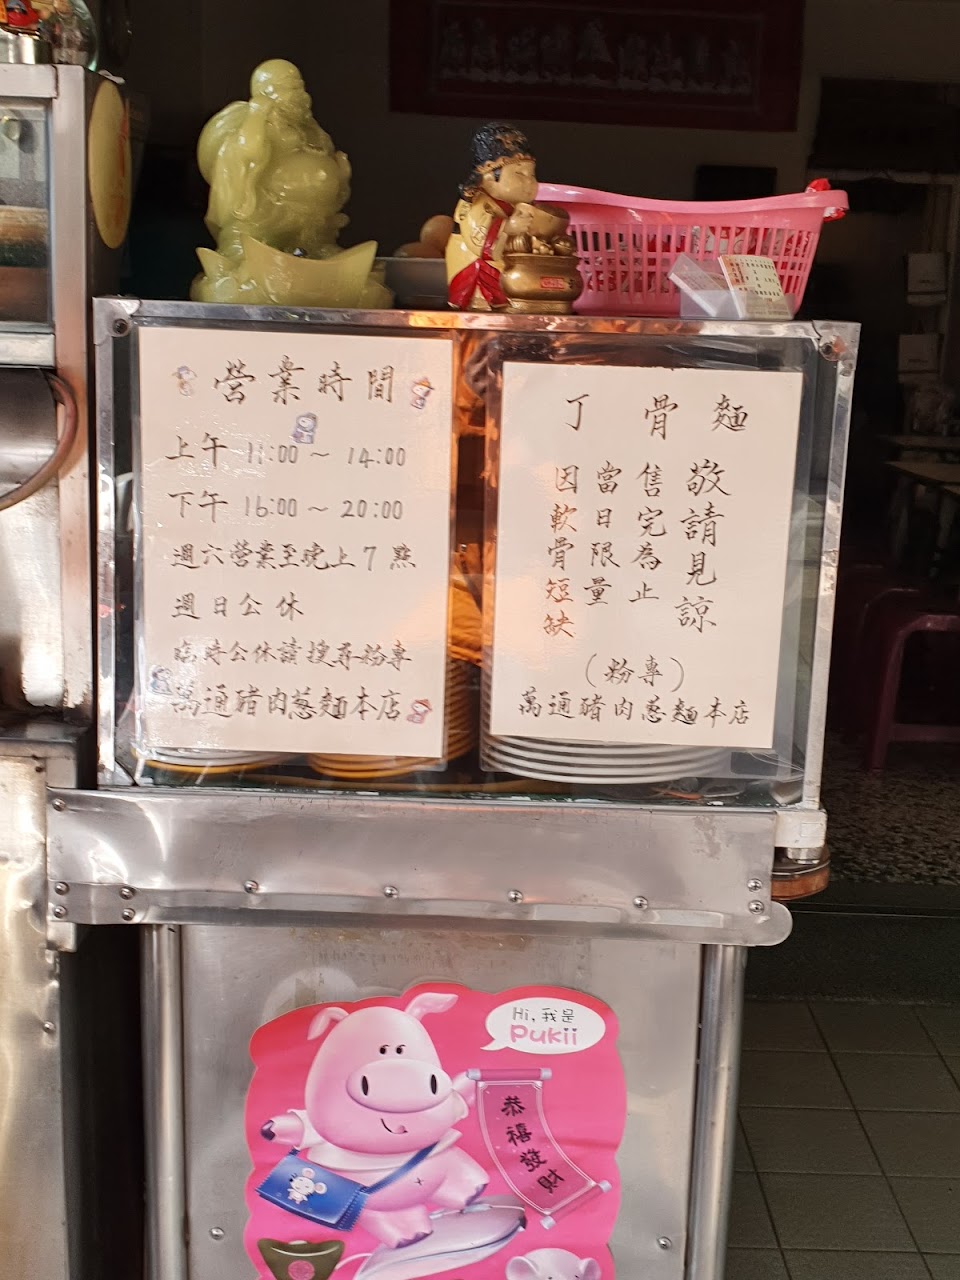 營業時間
上午 11:00 ~ 14:00
下午 16:00 ~ 20:00
週六營業至晚上7點
週日公休
臨時公休請搜尋粉專
萬通豬肉蔥麵本店
丁骨麵
因軟骨短缺
當日限量
售完為止
敬請見諒
(粉專)
萬通豬肉蔥麵本店
Hi, 我是
Pukii
恭禧發財